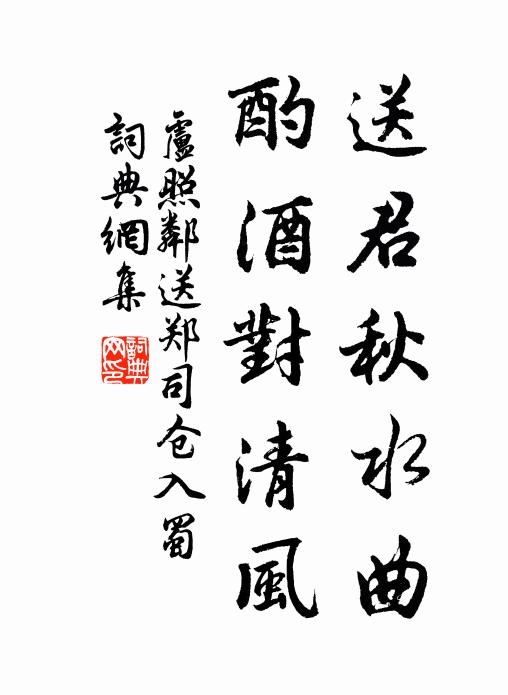 送君秋水曲
酌酒對清風
盧照鄰送郑司仓入蜀
詞典網集
詞典網印